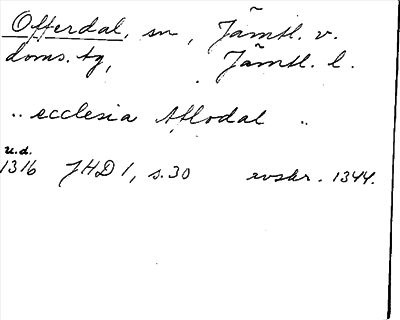 Offerdal, sn, Jämtl. v.
doms. tg, Jämtl. l.
.. ecclesia Aflodal ..
u.d.
1316 JHD 1, s. 30 avskr. 1344.